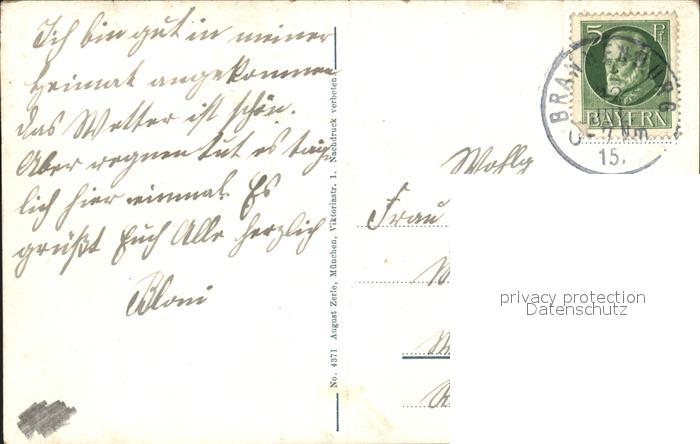 Ich bin gut in meiner
Heimat angekommen
das Wetter ist schön.
Aber regnen tut es täg-
lich hier einmal. Es
grüßt Euch Alle herzlich
Bloni
No. 4371 August Zerle, München, Viktoriastr. 1. Nachdruck verboten.
5 Pf
BAYERN
BRANNENBURG
15.
Wohlg
Frau
privacy protection
Datenschutz